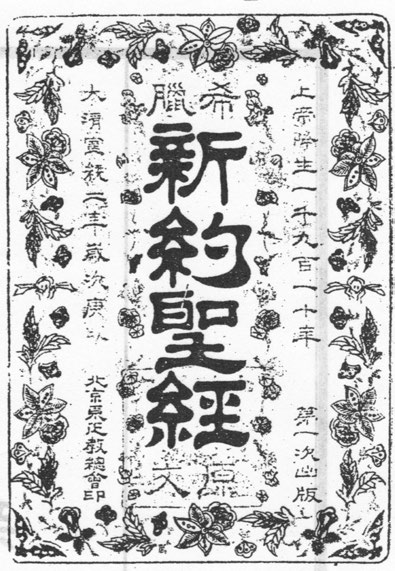 上帝降生一千九百一十年
第一次出版
希臘
新約聖經
原文
大清宣統二年歲次庚
北京東正教總會印